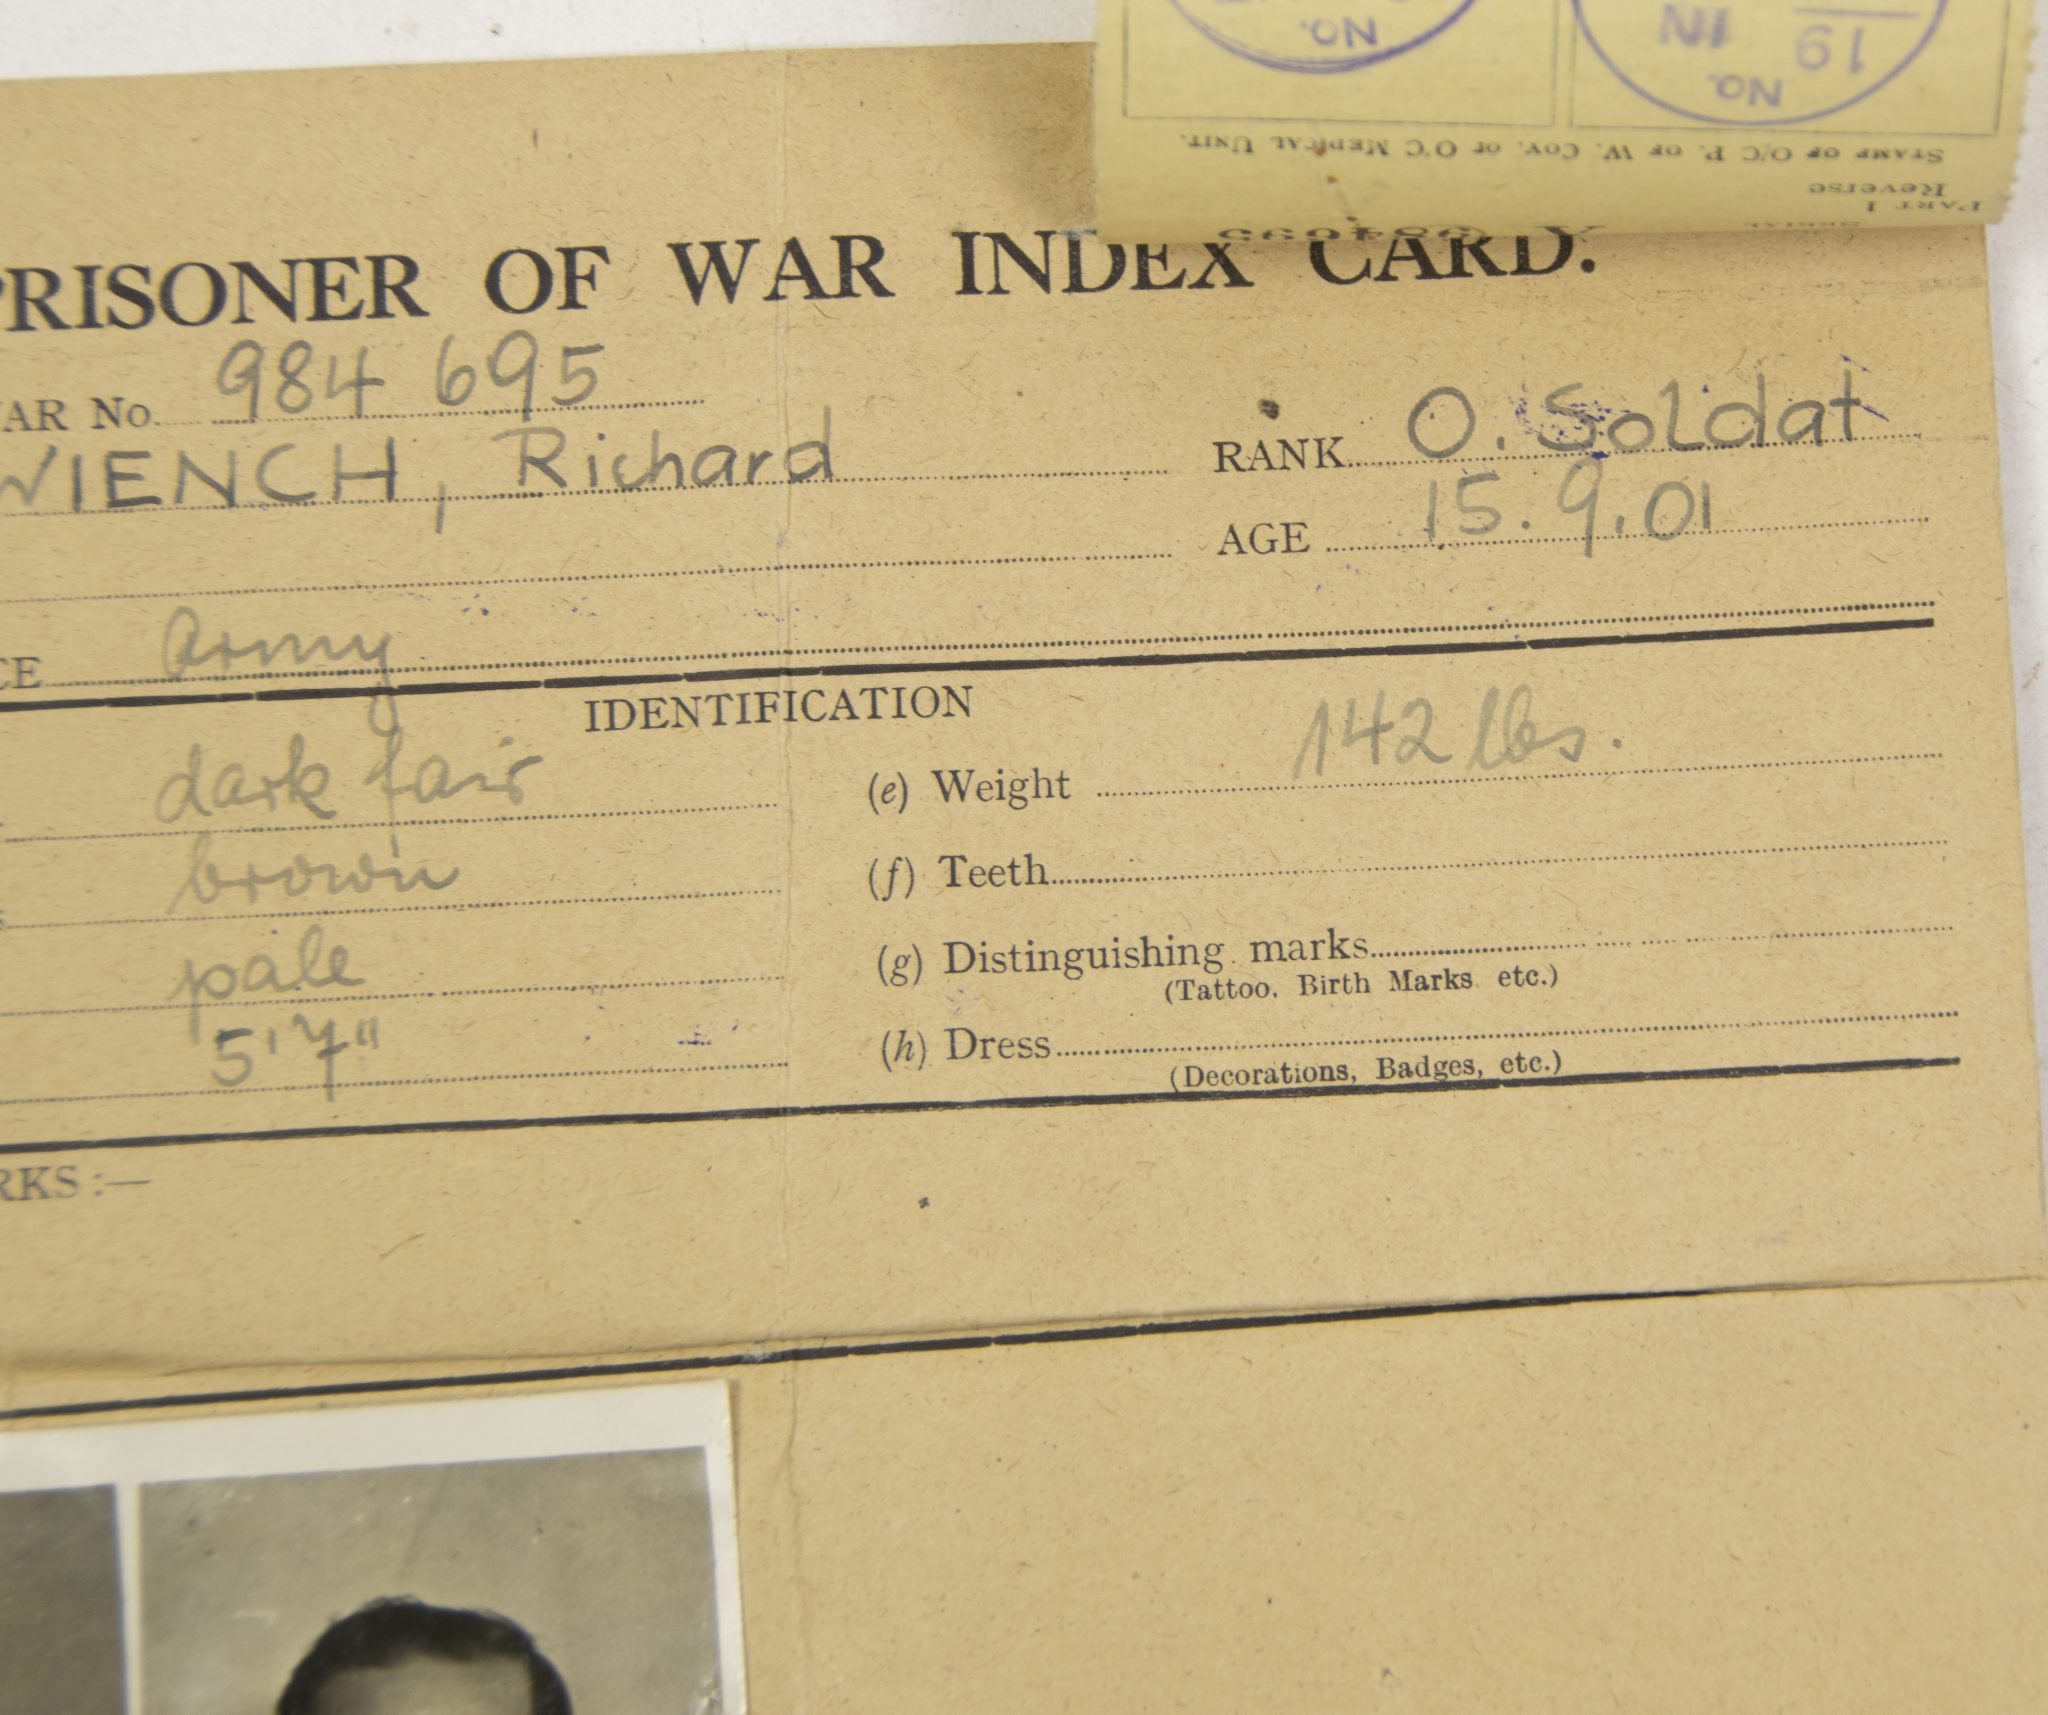 No. IN 19
No.
STAMP OF O/C P. OF W. COY. OR O'C MEDICAL UNIT.
Reverse
PART 1
PRISONER OF WAR INDEX CARD.
WAR No. 984 695
WIENCH, Richard RANK O. Soldat
AGE 15.9.01
CE Army
IDENTIFICATION
dark fair (e) Weight 142 lbs.
brown (f) Teeth
pale (g) Distinguishing marks
(Tattoo, Birth Marks etc.)
5' 7" (h) Dress
(Decorations, Badges, etc.)
RKS :—